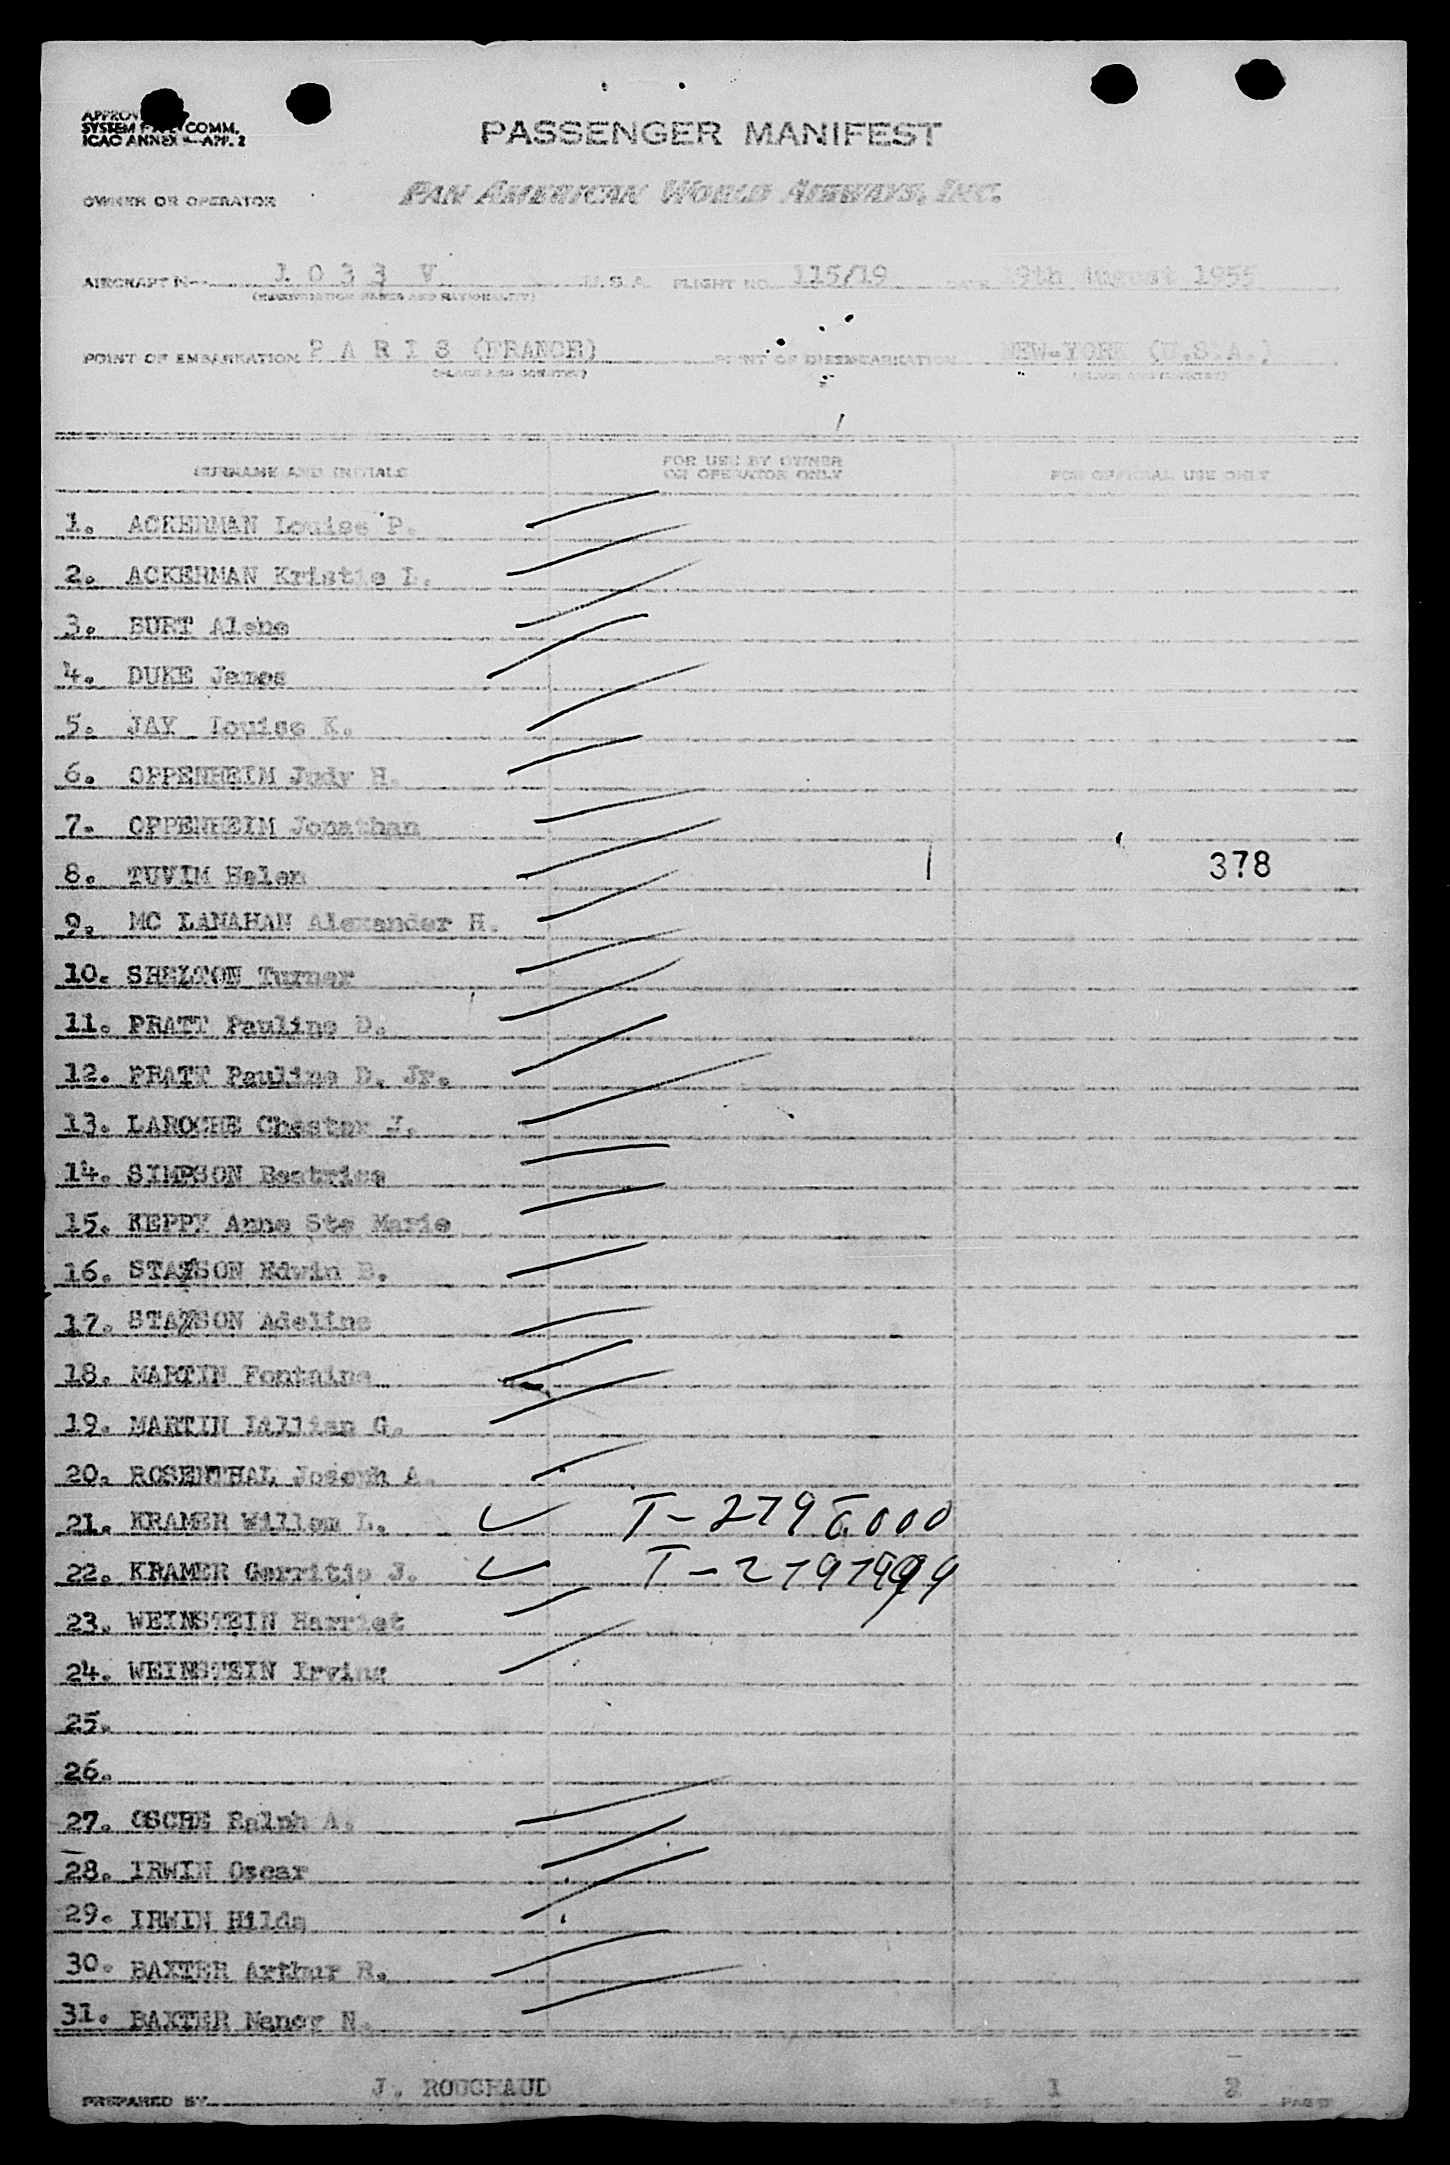 PASSENGER MANIFEST
SYSTEM COMM.
ICAO ANNEX —APP. 2
OWNER OR OPERATOR PAN AMERICAN WORLD AIRWAYS, INC.
AIRCRAFT 1 0 3 3 V U.S.A. FLIGHT NO. 115/19 DATE 19th August 1955
(REGISTRATION MARKS AND NATIONALITY)
POINT OF EMBARKATION P A R I S (FRANCE) POINT OF DISEMBARKATION NEW-YORK (U.S.A.)
(PLACE AND COUNTRY) (PLACE AND COUNTRY)
SURNAME AND INITIALS FOR USE BY OWNER OR OPERATOR ONLY FOR OFFICIAL USE ONLY
1. ACKERMAN Louise P.
2. ACKERMAN Kristie L.
3. BURT Alene
4. DUKE James
5. JAY Louise K.
6. OPPENHEIM Judy H.
7. OPPENHEIM Jonathan
8. TUVIM Helen 1 378
9. MC LANAHAN Alexander H.
10. SHELTON Turner
11. PRATT Pauline D.
12. PRATT Pauline D. Jr.
13. LAROCHE Chester J.
14. SIMPSON Beatrice
15. KEPPY Anne Ste Marie
16. STATSON Edwin B.
17. STATSON Adeline
18. MARTIN Fontaine
19. MARTIN Lillian G.
20. ROSENTHAL Joseph A.
21. KRAMER Willem L. T-279
22. KRAMER Gerritje J. T-2797999
23. WEINSTEIN Harriet
24. WEINSTEIN Irving
25.
26.
27. OSCHE Ralph A.
28. IRWIN Oscar
29. IRWIN Hilda
30. BAXTER Arthur R.
31. BAXTER Nancy N.
PREPARED BY J. ROUCHAUD PAGE 1 2 PAGES